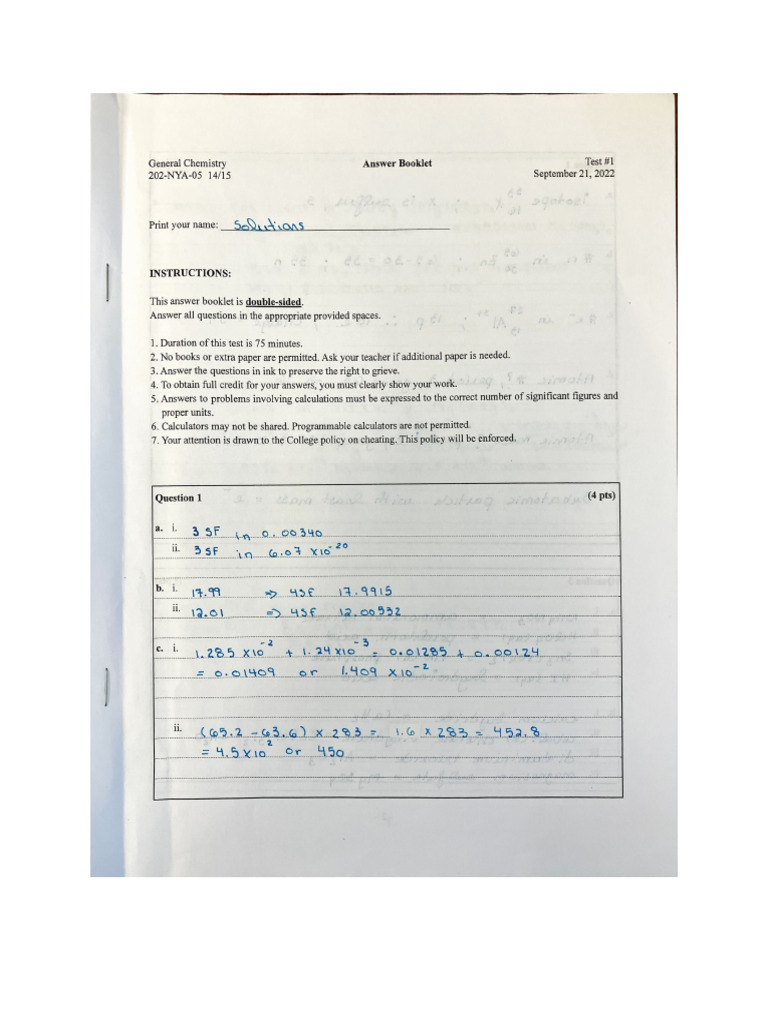 General Chemistry Answer Booklet Test #1
202-NYA-05 14/15 September 21, 2022
Print your name: Solutions
INSTRUCTIONS:
This answer booklet is double-sided.
Answer all questions in the appropriate provided spaces.
1. Duration of this test is 75 minutes.
2. No books or extra paper are permitted. Ask your teacher if additional paper is needed.
3. Answer the questions in ink to preserve the right to grieve.
4. To obtain full credit for your answers, you must clearly show your work.
5. Answers to problems involving calculations must be expressed to the correct number of significant figures and
proper units.
6. Calculators may not be shared. Programmable calculators are not permitted.
7. Your attention is drawn to the College policy on cheating. This policy will be enforced.
Question 1 (4 pts)
a. i. 3 SF in 0.00340
ii. 3 SF in 6.07 x10⁻²⁰
b. i. 17.99 => 4SF 17.9915
ii. 12.01 => 4SF 12.00532
c. i. 1.285 x10⁻² + 1.24 x10⁻³ = 0.01285 + 0.00124
= 0.01409 or 1.409 x10⁻²
ii. (65.2 - 63.6) x 283 = 1.6 x 283 = 452.8
= 4.5 x10² or 450